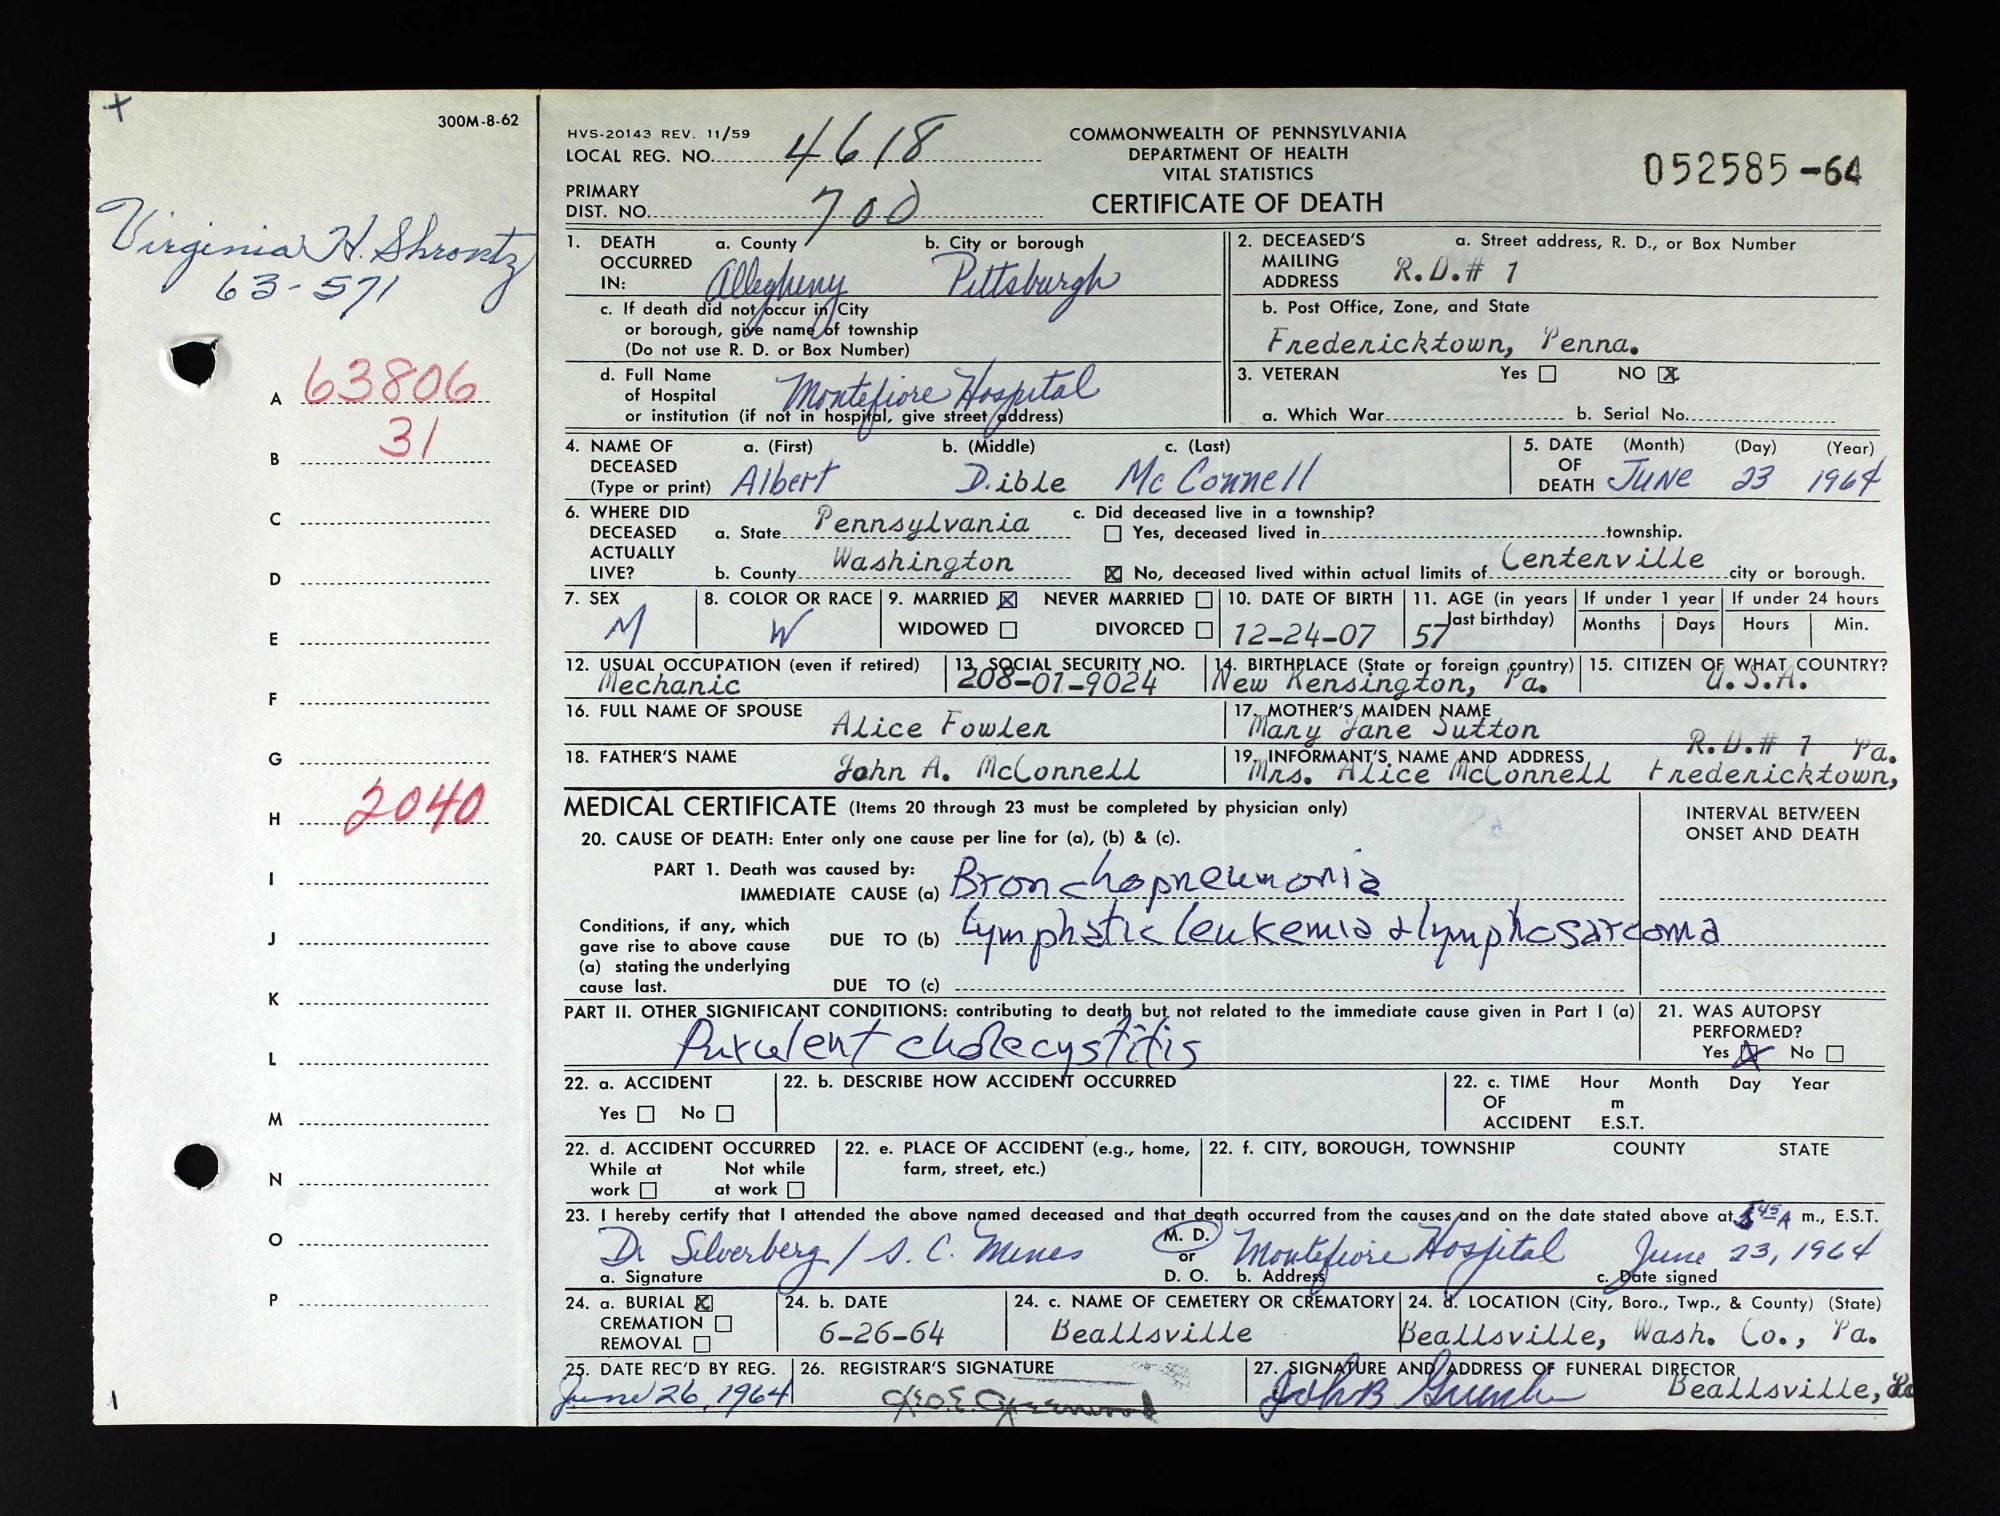 300M-8-62
Virginia H. Shrontz
63-571
A 63806
B 31
C
D
E
F
G
H 2040
I
J
K
L
M
N
O
P
HVS-20143 REV. 11/59
LOCAL REG. NO. 4618
PRIMARY
DIST. NO. 700
COMMONWEALTH OF PENNSYLVANIA
DEPARTMENT OF HEALTH
VITAL STATISTICS
CERTIFICATE OF DEATH
052585-64
1. DEATH OCCURRED IN: a. County Allegheny b. City or borough Pittsburgh
c. If death did not occur in City
or borough, give name of township
(Do not use R. D. or Box Number)
d. Full Name
of Hospital Montefiore Hospital
or institution (if not in hospital, give street address)
2. DECEASED'S MAILING ADDRESS a. Street address, R. D., or Box Number
R.D.# 1
b. Post Office, Zone, and State
Fredericktown, Penna.
3. VETERAN Yes NO X
a. Which War b. Serial No.
4. NAME OF DECEASED (Type or print) a. (First) Albert b. (Middle) Dible c. (Last) McConnell
5. DATE OF DEATH (Month) JUNE (Day) 23 (Year) 1964
6. WHERE DID DECEASED ACTUALLY LIVE? a. State Pennsylvania
b. County Washington
c. Did deceased live in a township?
Yes, deceased lived in township.
X No, deceased lived within actual limits of Centerville city or borough.
7. SEX M
8. COLOR OR RACE W
9. MARRIED X NEVER MARRIED
WIDOWED DIVORCED
10. DATE OF BIRTH 12-24-07
11. AGE (in years last birthday) 57
If under 1 year Months Days
If under 24 hours Hours Min.
12. USUAL OCCUPATION (even if retired) Mechanic
13. SOCIAL SECURITY NO. 208-01-9024
14. BIRTHPLACE (State or foreign country) New Kensington, Pa.
15. CITIZEN OF WHAT COUNTRY? U.S.A.
16. FULL NAME OF SPOUSE Alice Fowler
17. MOTHER'S MAIDEN NAME Mary Jane Sutton
18. FATHER'S NAME John A. McConnell
19. INFORMANT'S NAME AND ADDRESS R.D.# 1 Pa.
Mrs. Alice McConnell Fredericktown,
MEDICAL CERTIFICATE (Items 20 through 23 must be completed by physician only)
INTERVAL BETWEEN
ONSET AND DEATH
20. CAUSE OF DEATH: Enter only one cause per line for (a), (b) & (c).
PART 1. Death was caused by:
IMMEDIATE CAUSE (a) Bronchopneumonia
Conditions, if any, which
gave rise to above cause
(a) stating the underlying
cause last.
DUE TO (b) Lymphatic leukemia & lymphosarcoma
DUE TO (c)
PART II. OTHER SIGNIFICANT CONDITIONS: contributing to death but not related to the immediate cause given in Part I (a)
Purulent cholecystitis
21. WAS AUTOPSY
PERFORMED?
Yes X No
22. a. ACCIDENT
Yes No
22. b. DESCRIBE HOW ACCIDENT OCCURRED
22. c. TIME OF ACCIDENT Hour Month Day Year
m
E.S.T.
22. d. ACCIDENT OCCURRED
While at work Not while at work
22. e. PLACE OF ACCIDENT (e.g., home,
farm, street, etc.)
22. f. CITY, BOROUGH, TOWNSHIP COUNTY STATE
23. I hereby certify that I attended the above named deceased and that death occurred from the causes and on the date stated above at 5 45 A m., E.S.T.
Dr Silverberg / S. C. Mines M. D. Montefiore Hospital June 23, 1964
or
a. Signature D. O. b. Address c. Date signed
24. a. BURIAL X
CREMATION
REMOVAL
24. b. DATE
6-26-64
24. c. NAME OF CEMETERY OR CREMATORY
Beallsville
24. d. LOCATION (City, Boro., Twp., & County) (State)
Beallsville, Wash. Co., Pa.
25. DATE REC'D BY REG.
June 26, 1964
26. REGISTRAR'S SIGNATURE
Geo. E. Greenwood
27. SIGNATURE AND ADDRESS OF FUNERAL DIRECTOR
John B Beallsville, Pa